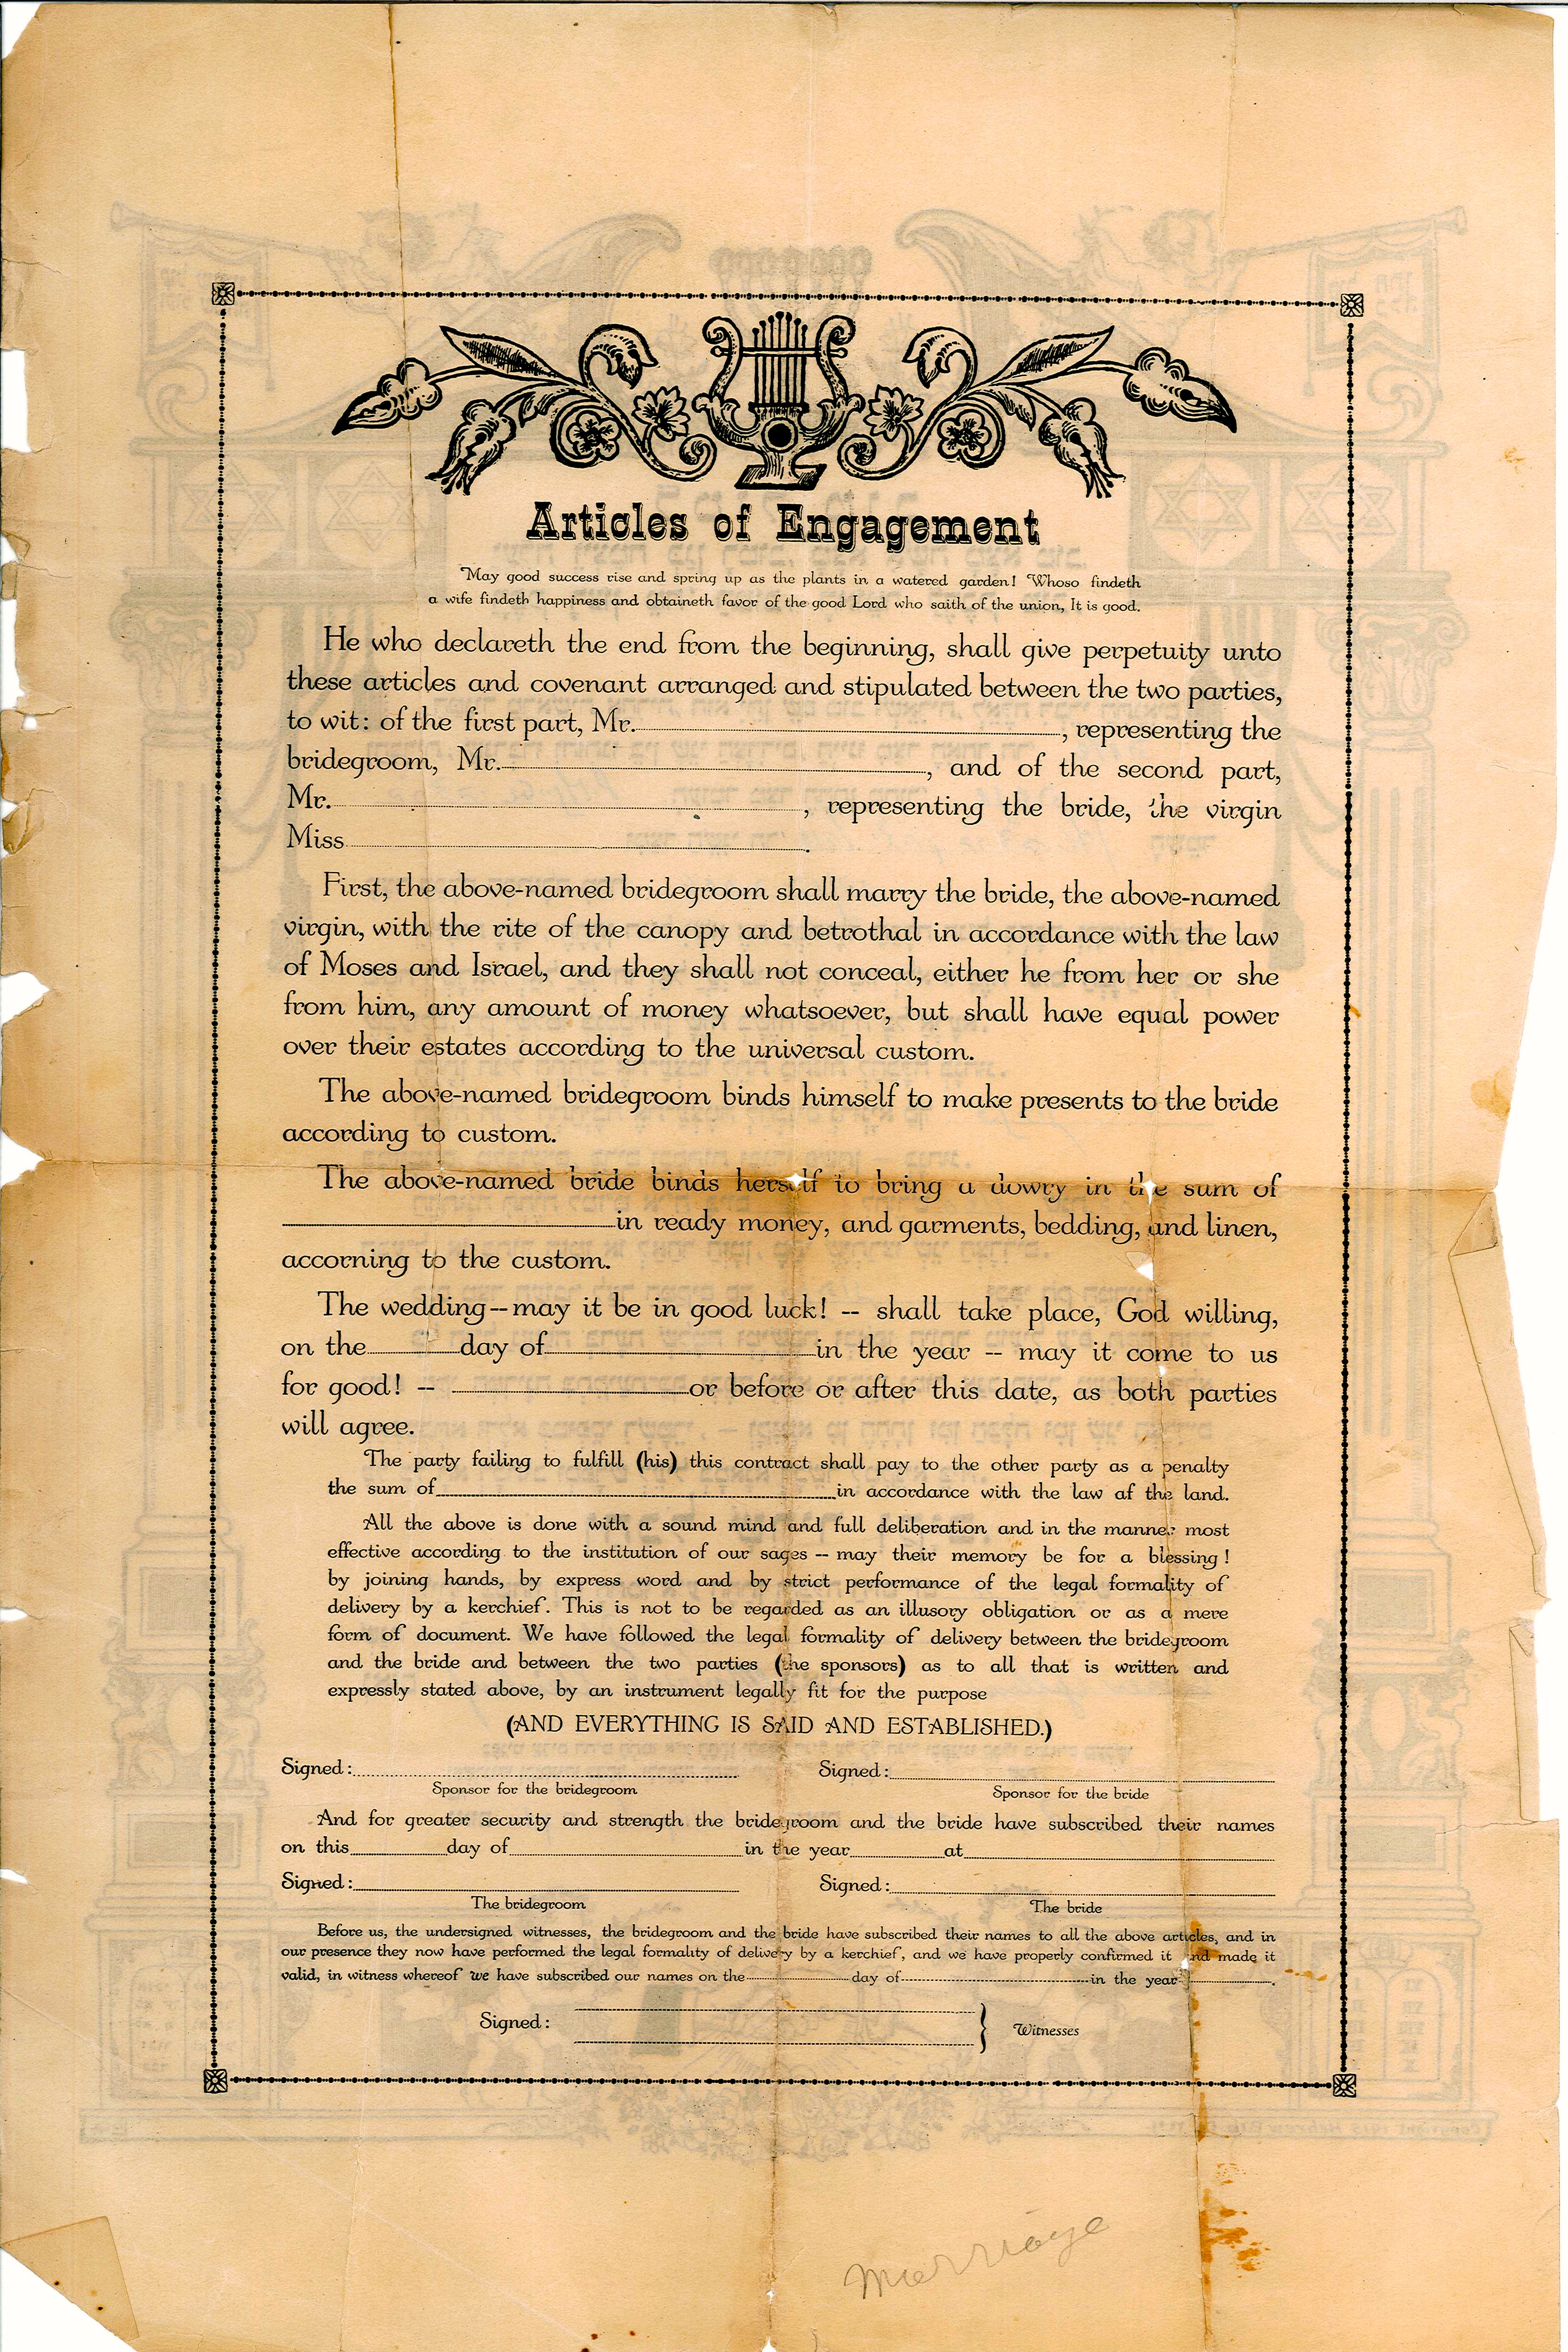 Articles of Engagement
May good success rise and spring up as the plants in a watered garden! Whoso findeth
a wife findeth happiness and obtaineth favor of the good Lord who saith of the union, It is good.
He who declareth the end from the beginning, shall give perpetuity unto
these articles and covenant arranged and stipulated between the two parties,
to wit: of the first part, Mr. , representing the
bridegroom, Mr. , and of the second part,
Mr. , representing the bride, the virgin
Miss .
First, the above-named bridegroom shall marry the bride, the above-named
virgin, with the rite of the canopy and betrothal in accordance with the law
of Moses and Israel, and they shall not conceal, either he from her or she
from him, any amount of money whatsoever, but shall have equal power
over their estates according to the universal custom.
The above-named bridegroom binds himself to make presents to the bride
according to custom.
The above-named bride binds herself to bring a dowry in the sum of
in ready money, and garments, bedding, and linen,
accorning to the custom.
The wedding -- may it be in good luck! -- shall take place, God willing,
on the day of in the year -- may it come to us
for good! -- or before or after this date, as both parties
will agree.
The party failing to fulfill (his) this contract shall pay to the other party as a penalty
the sum of in accordance with the law af the land.
All the above is done with a sound mind and full deliberation and in the manner most
effective according to the institution of our sages -- may their memory be for a blessing!
by joining hands, by express word and by strict performance of the legal formality of
delivery by a kerchief. This is not to be regarded as an illusory obligation or as a mere
form of document. We have followed the legal formality of delivery between the bridegroom
and the bride and between the two parties (the sponsors) as to all that is written and
expressly stated above, by an instrument legally fit for the purpose
(AND EVERYTHING IS SAID AND ESTABLISHED.)
Signed: Signed:
Sponsor for the bridegroom Sponsor for the bride
And for greater security and strength the bridegroom and the bride have subscribed their names
on this day of in the year at
Signed: Signed:
The bridegroom The bride
Before us, the undersigned witnesses, the bridegroom and the bride have subscribed their names to all the above articles, and in
our presence they now have performed the legal formality of delivery by a kerchief, and we have properly confirmed it and made it
valid, in witness whereof we have subscribed our names on the day of in the year .
Signed: } Witnesses
Marriage